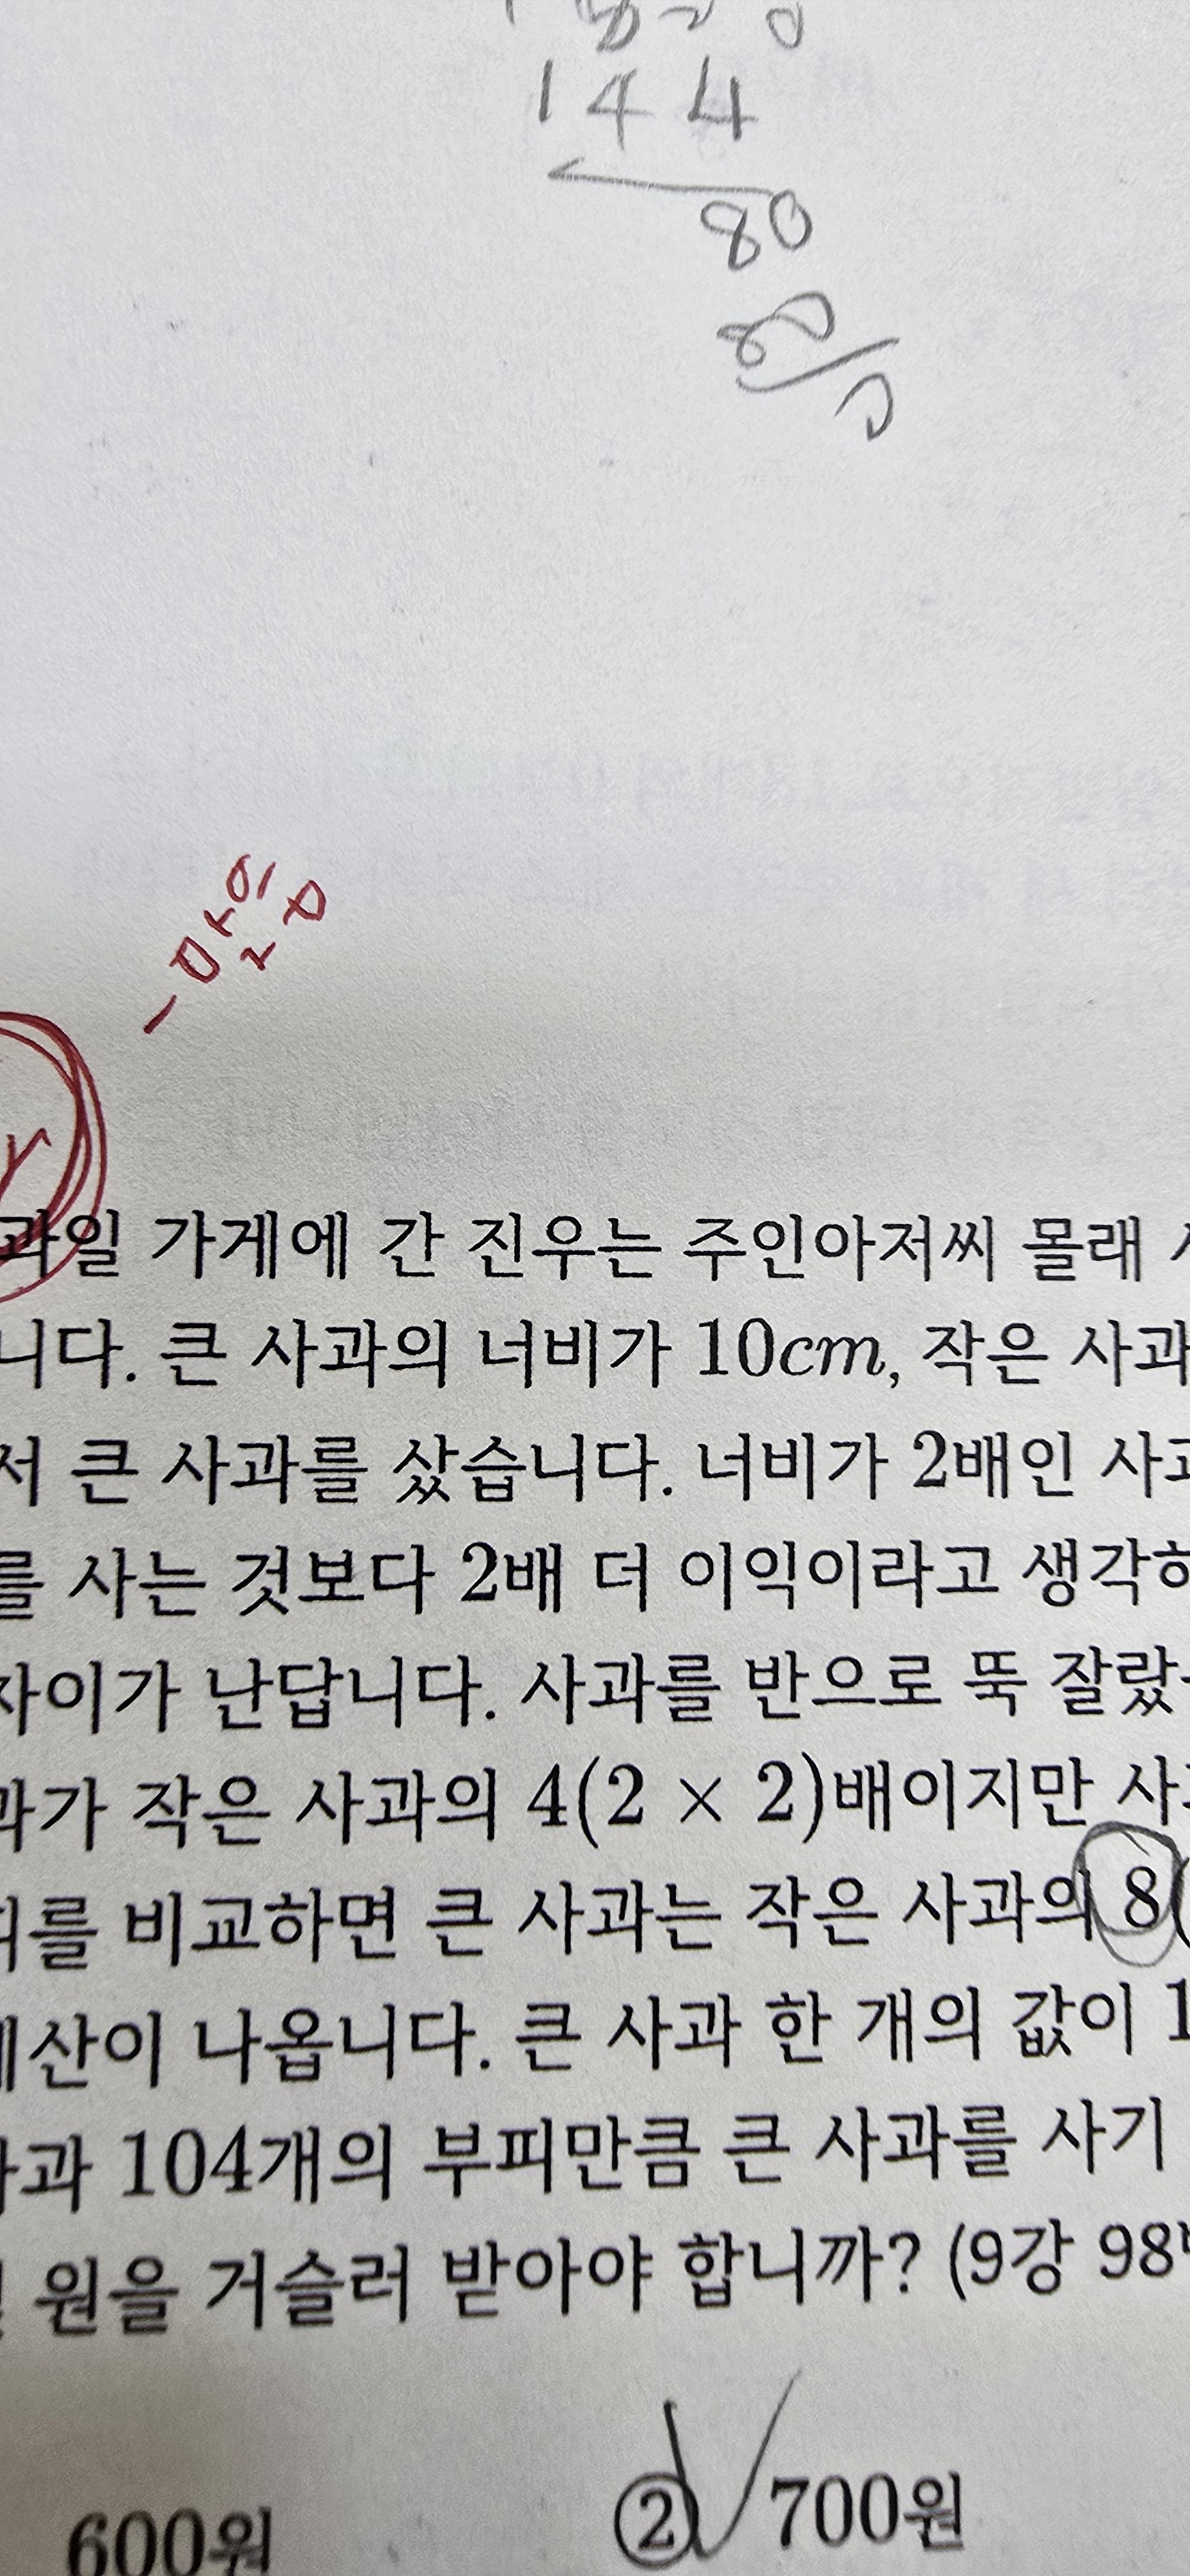 144
80
과일 가게에 간 진우는 주인아저씨 몰래
니다. 큰 사과의 너비가 10cm, 작은 사과
서 큰 사과를 샀습니다. 너비가 2배인 사과
를 사는 것보다 2배 더 이익이라고 생각하
차이가 난답니다. 사과를 반으로 뚝 잘랐
과가 작은 사과의 4(2 × 2)배이지만 사
피를 비교하면 큰 사과는 작은 사과의 8(
계산이 나옵니다. 큰 사과 한 개의 값이 1
사과 104개의 부피만큼 큰 사과를 사기
원을 거슬러 받아야 합니까? (9강 98번
600원 ② 700원